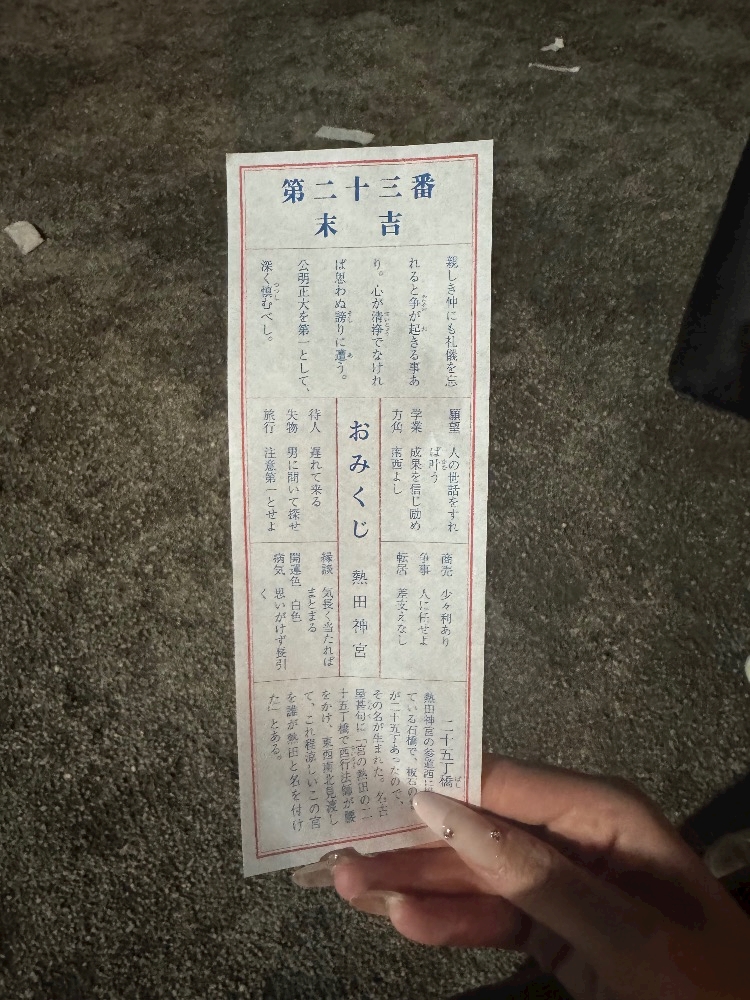 第二十三番
末吉
親しき仲にも礼儀を忘
れると争が起きる事あ
り。心が清浄でなけれ
ば思わぬ謗りに遭う。
公明正大を第一として、
深く慎むべし。
願望 人の世話をすれ
ば叶う
学業 成果を信じ励め
方角 南西よし
おみくじ 熱田神宮
待人 遅れて来る
失物 男に問いて探せ
旅行 注意第一とせよ
商売 少々利あり
争事 人に任せよ
転居 差支えなし
縁談 気長く当たれば
まとまる
開運色 白色
病気 思いがけず長引
く
二十五丁橋
熱田神宮の参道西に
ている石橋で、板石の
が二十五丁あったので、
その名が生まれた。名古
屋甚句に「宮の熱田の二
十五丁橋で西行法師が腰
をかけ、東西南北見渡し
て、これ程涼しいこの宮
を誰が熱田と名を付け
た」とある。